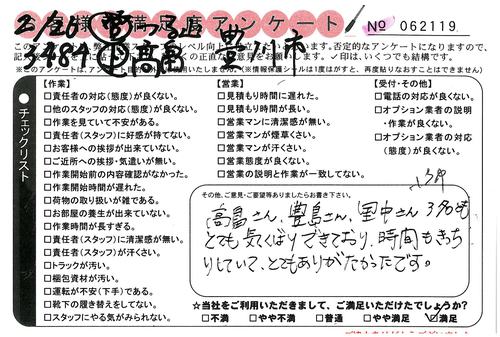 お客様満足度アンケート
№ 062119
2/26
豊川市
3484
※このアンケートは、
(※情報保護シールは1度はがすと、再度貼りなおすことはできません)
●チェックリスト
【作業】
□責任者の対応(態度)が良くない。
□他のスタッフの対応(態度)が良くない。
□作業を見ていて不安がある。
□責任者(スタッフ)に好感が持てない。
□お客様への挨拶が出来ていない。
□ご近所への挨拶・気遣いが無い。
□作業開始前の内容確認がなかった。
□作業開始時間が遅れた。
□荷物の取り扱いが雑である。
□お部屋の養生が出来ていない。
□作業時間が長すぎる。
□責任者(スタッフ)に清潔感が無い。
□責任者(スタッフ)が汗くさい。
□トラックが汚い。
□梱包資材が汚い。
□運転が不安(下手)である。
□靴下の履き替えをしてない。
□スタッフにやる気がみられない。
【営業】
□見積もり時間に遅れた。
□見積もり時間が長い。
□営業マンに清潔感が無い。
□営業マンが煙草くさい。
□営業マンが汗くさい。
□営業態度が良くない。
□営業の説明と作業が一致してない。
【受付・その他】
□電話の対応が良くない。
□オプション業者の説明
・作業が良くない。
□オプション業者の対応
(態度)が良くない。
その他、ご意見・ご要望等ありましたらお書き下さい。
高畠さん、豊島さん、里中さん 3名とも
とても気くばりできており、時間もきっち
りしていて、とてもありがたかったです。
☆当社をご利用いただきまして、ご満足いただけたでしょうか?
□不満 □やや不満 □普通 □やや満足 ☑満足